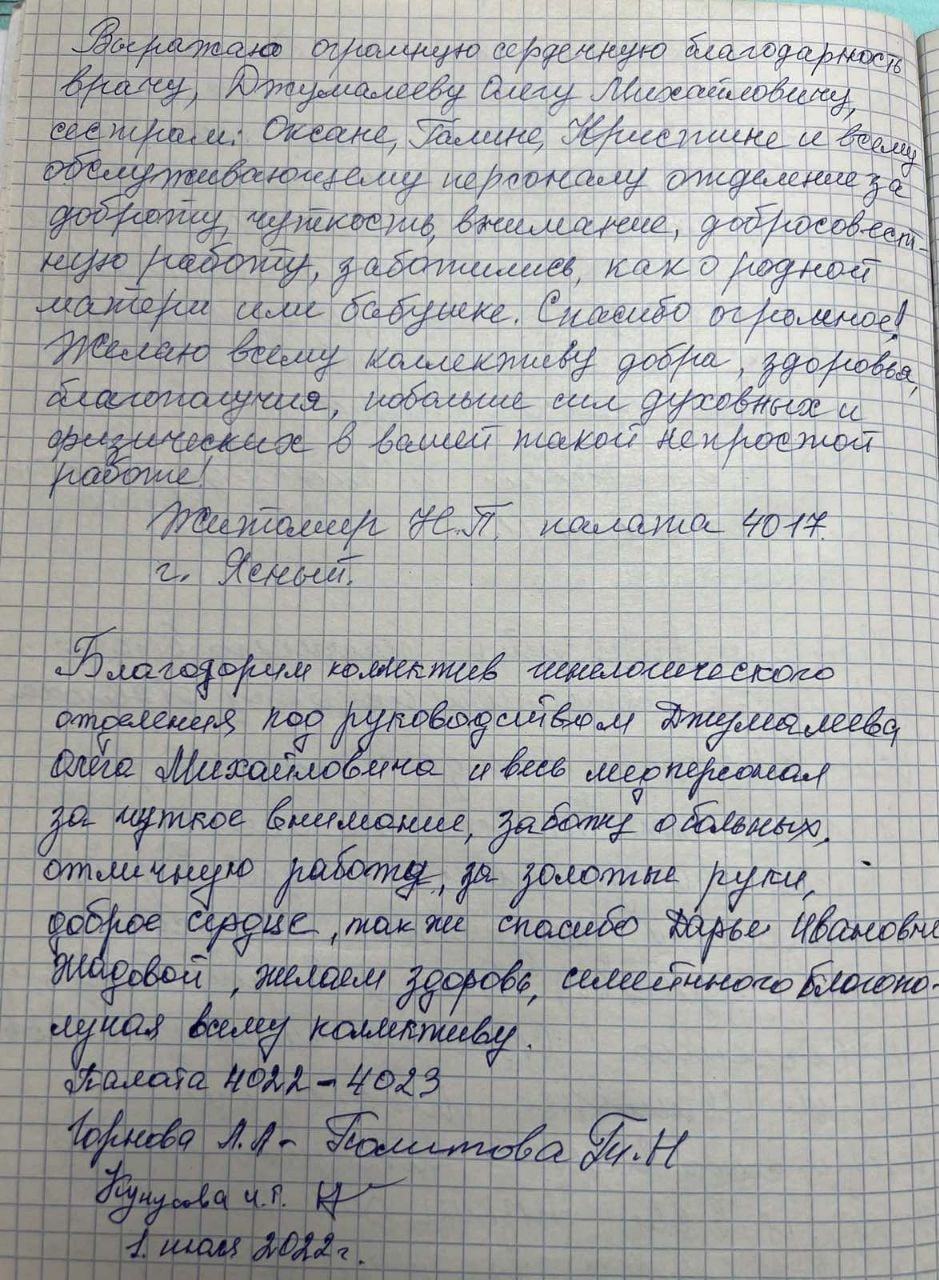 Выражаю огромную сердечную благодарность
врачу, Джумалееву Олегу Михайловичу,
сестрам: Оксане, Галине, Кристине и всему
обслуживающему персоналу отделение за
доброту, чуткость, внимание, добросовест-
ную работу, заботились, как о родной
матери или бабушке. Спасибо огромное!
Желаю всему коллективу добра, здоровья,
благополучия, побольше сил духовных и
физических в вашей такой непростой
работе!
Житомир Н.П. палата 4017.
г. Ясный.
Благодорим коллектив гинелогического
отделения под руководством Джумалева
Олега Михайловича и весь медперсонал
за чуткое внимание, заботу о больных,
отличную работу, за золотые руки,
доброе сердце, так же спасибо Дарье Ивановне
Жадовой, желаем здоровь, семейнного благопо-
лучая всему коллективу.
Палата 4022-4023
Горнова Л.Л-
1. 2022г.